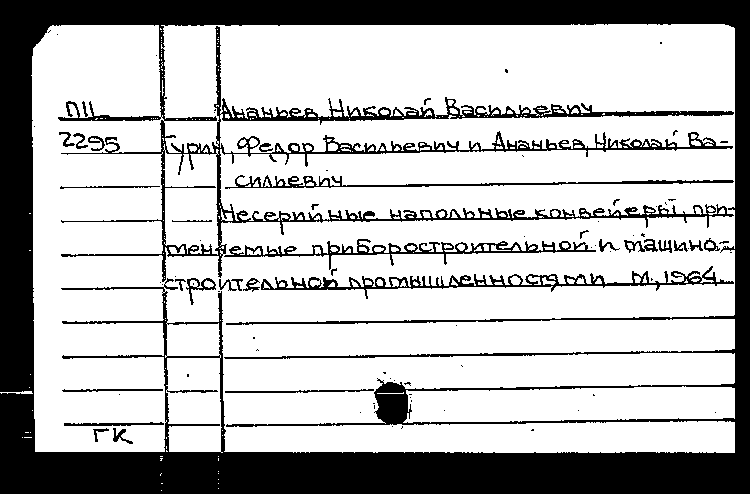 П11 Ананьев, Николай Васильевич
2295 Гурин, Федор Васильевич и Ананьев, Николай Ва-
сильевич
Несерийные напольные конвейеры, при-
меняемые приборостроительной и машино-
строительной промышленностями. М., 1964.
ГК